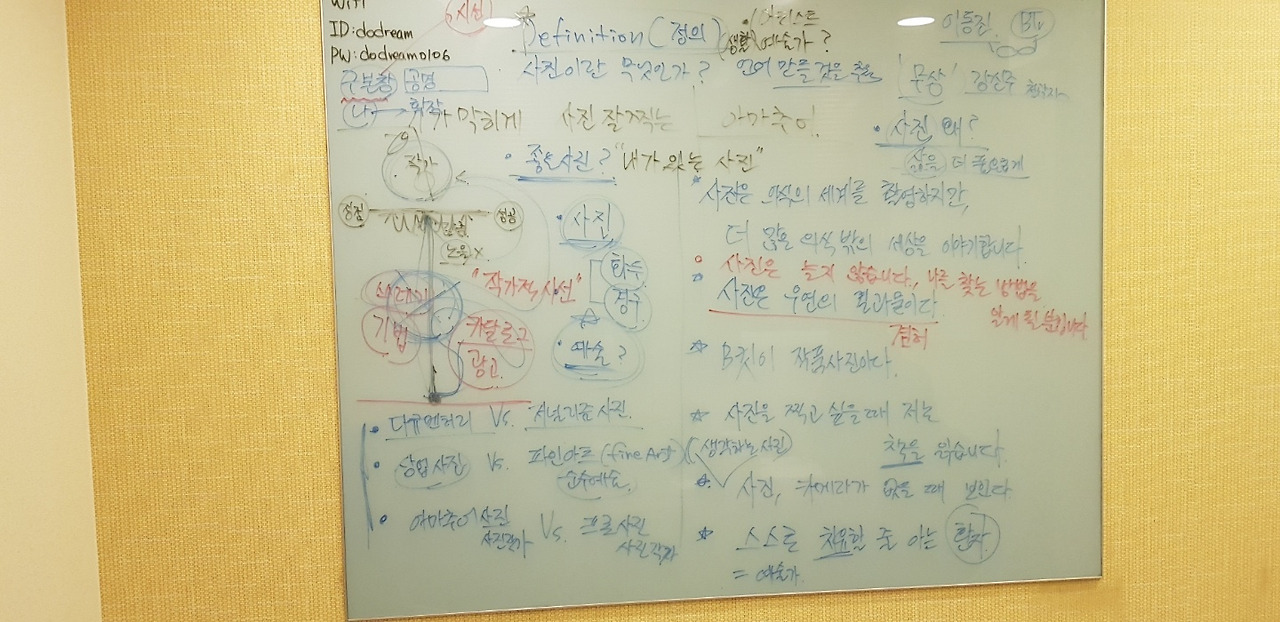 WiFi
ID:dodream
PW:dodream0106
시선
Definition (정의)
아티스트
생활 예술가?
이등진 BTS
구본창 공명
사진이란 무엇인가? 언어 만들 것을
'무상' 강신주 철학자
나 → 휘작
기가 막히게 사진 잘찍는 아마추어
사진 왜?
삶을 더 풍요롭게
작가
좋은사진? "내가 있는 사진"
장점
노을 X
사진
화두
경구
"작가적 시선"
기법
카달로그
광고
예술?
사진은 의식의 세계를 촬영하지만,
더 많은 의식 밖의 세상을 이야기합니다
사진은 늘지 않습니다., 나를 찾는 방법을
알게 될 뿐입니다
사진은 우연의 결과물이다
겸허
B컷이 작품사진이다.
다큐멘터리 Vs. 저널리즘 사진.
상업사진 Vs. 파인아트 (fine Art) (생각하는 사진)
순수예술
아마추어 사진 Vs. 프로 사진
사진작가 사진작가
사진을 찍고 싶을때 저는
책을 읽습니다.
사진, 카메라가 없을 때 보인다.
스스로 치유할 줄 아는 환자
= 예술가.